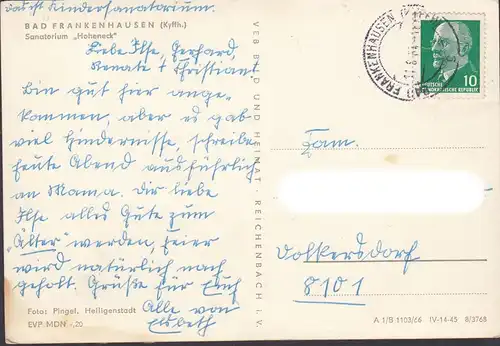 Das ist Kindersanatorium.
BAD FRANKENHAUSEN (Kyffh.)
Sanatorium „Hoheneck"
Liebe Ilse, Gerhard,
Renate + Christiane
Bin gut hier ange-
kommen, aber es gab
viel Hindernisse, schreibe
heute Abend ausführlich
an Mama. Dir liebe
Ilse alles Gute zum
„Älter" werden, Feier
wird natürlich nach
geholt. Grüße für Euch
Alle von
Elsbeth
Fotos: Pingel, Heiligenstadt
EVP MDN -,20
VEB BILD UND HEIMAT · REICHENBACH I. V.
BAD FRANKENHAUSEN
DEUTSCHE
DEMOKRATISCHE REPUBLIK
10
Fam.
Volkersdorf
8101
A 1/B 1103/66 IV-14-45 8/3768